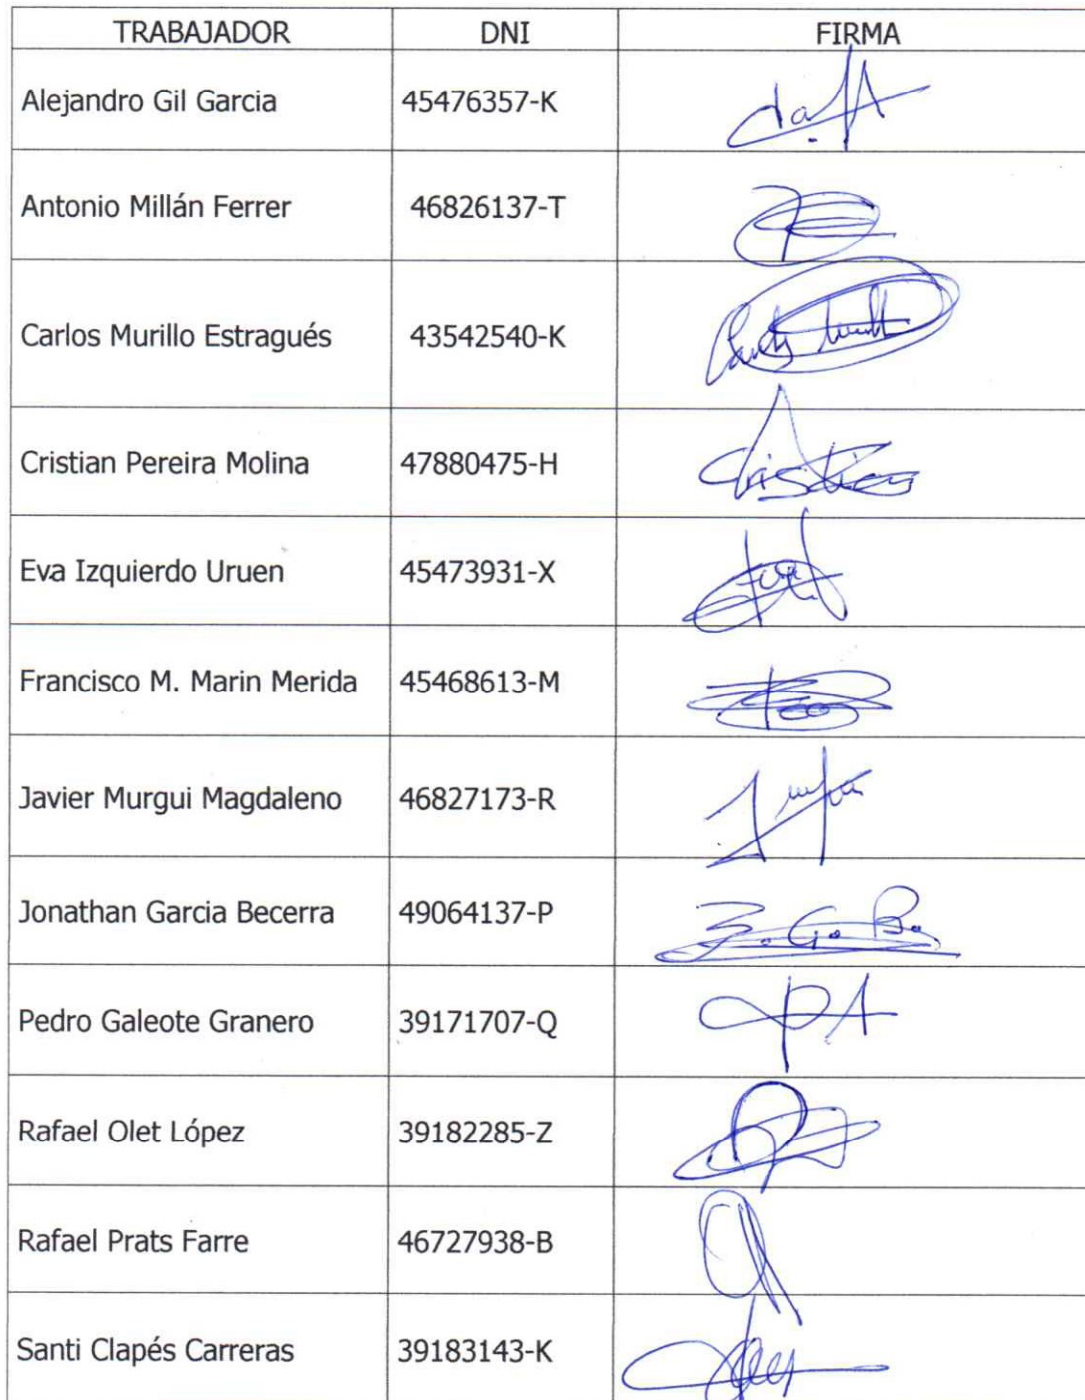 TRABAJADOR DNI FIRMA
Alejandro Gil Garcia 45476357-K
Antonio Millán Ferrer 46826137-T
Carlos Murillo Estragués 43542540-K
Cristian Pereira Molina 47880475-H Cristian
Eva Izquierdo Uruen 45473931-X
Francisco M. Marin Merida 45468613-M
Javier Murgui Magdaleno 46827173-R
Jonathan Garcia Becerra 49064137-P
Pedro Galeote Granero 39171707-Q
Rafael Olet López 39182285-Z
Rafael Prats Farre 46727938-B
Santi Clapés Carreras 39183143-K